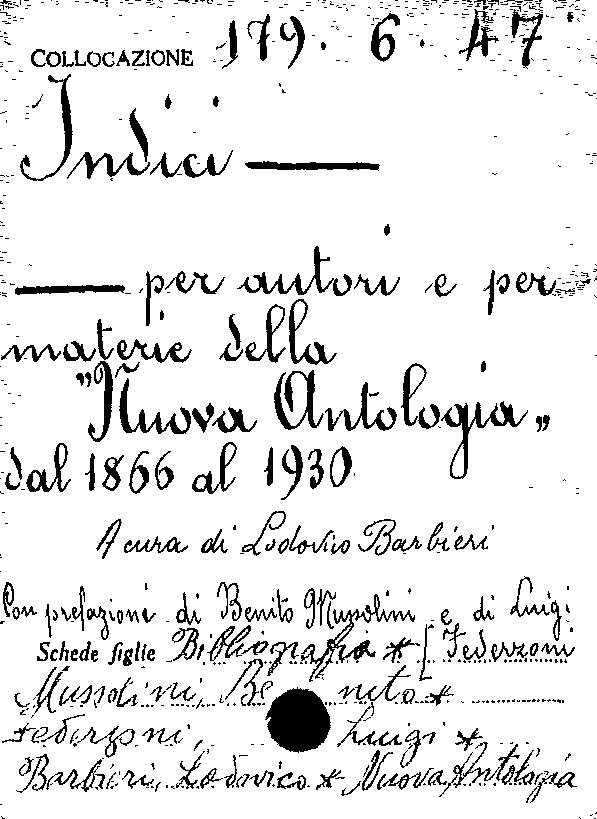 COLLOCAZIONE 179. 6. 47
Indici —
— per autori e per
materie della
"Nuova Antologia„
dal 1866 al 1930
A cura di Lodovico Barbieri
Con prefazione di Benito Mussolini e di Luigi
Schede figlie Bibliografia * [Federzoni
Mussolini, Benito *
Federzoni, Luigi *
Barbieri, Lodovico * Nuova Antologia